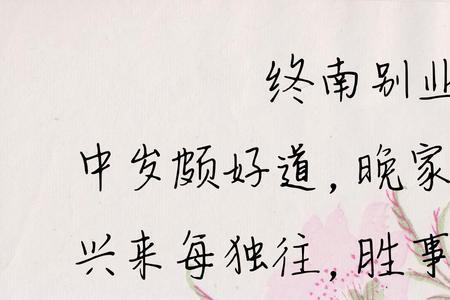 终南别业
中岁颇好道,晚家
兴来每独往,胜事